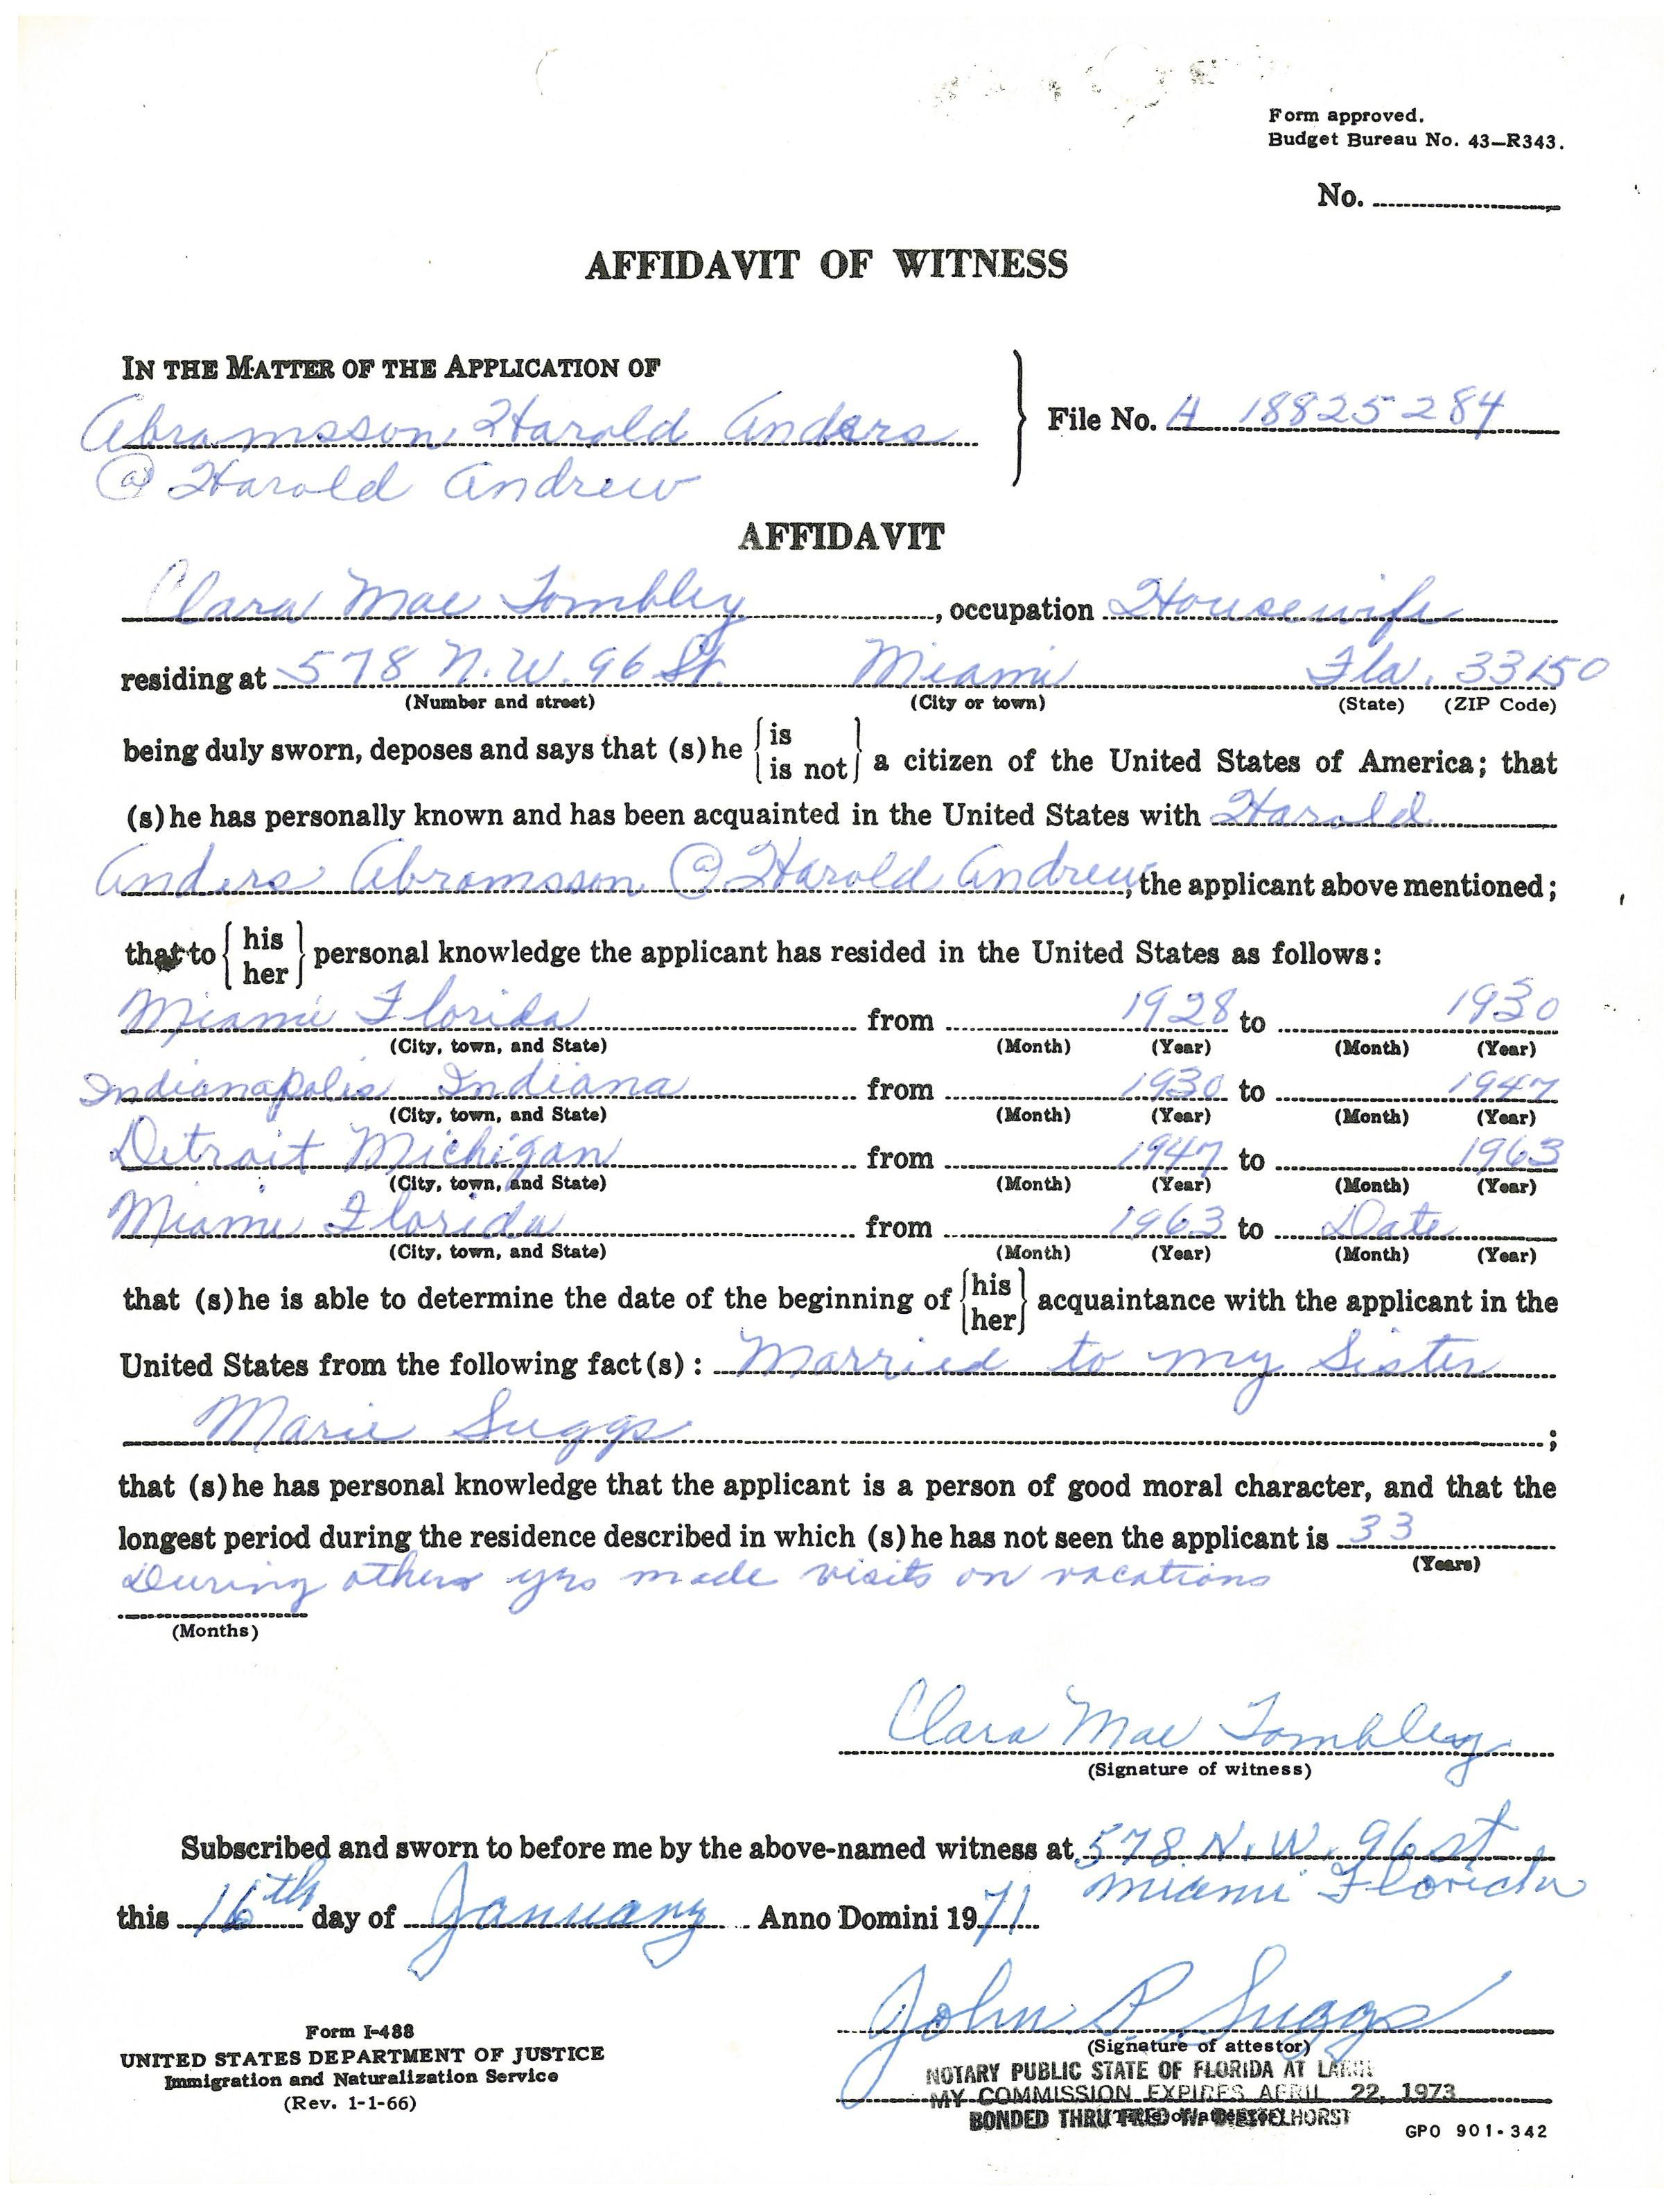 Form approved.
Budget Bureau No. 43–R343.
No.
AFFIDAVIT OF WITNESS
IN THE MATTER OF THE APPLICATION OF
Abramsson, Harold Anders
File No. A 18825284
@ Harold Andrew
AFFIDAVIT
Clara Mae Tombley, occupation Housewife
residing at 578 N.W. 96 St. Miami Fla. 33150
(Number and street) (City or town) (State) (ZIP Code)
being duly sworn, deposes and says that (s)he {is / is not} a citizen of the United States of America; that
(s)he has personally known and has been acquainted in the United States with Harold
Anders Abramsson @ Harold Andrew, the applicant above mentioned;
that to {his / her} personal knowledge the applicant has resided in the United States as follows:
Miami Florida from 1928 to 1930
(City, town, and State) (Month) (Year) (Month) (Year)
Indianapolis Indiana from 1930 to 1947
(City, town, and State) (Month) (Year) (Month) (Year)
Detroit Michigan from 1947 to 1963
(City, town, and State) (Month) (Year) (Month) (Year)
Miami Florida from 1963 to Date
(City, town, and State) (Month) (Year) (Month) (Year)
that (s)he is able to determine the date of the beginning of {his / her} acquaintance with the applicant in the
United States from the following fact(s): Married to my Sister
Marie Suggs ;
that (s)he has personal knowledge that the applicant is a person of good moral character, and that the
longest period during the residence described in which (s)he has not seen the applicant is 33
(Years)
During others yrs made visits on vacations
(Months)
Clara Mae Tombley
(Signature of witness)
Subscribed and sworn to before me by the above-named witness at 578 N.W. 96 st
Miami Florida
this 16th day of January Anno Domini 1971
John P Suggs
(Signature of attestor)
NOTARY PUBLIC STATE OF FLORIDA AT LARGE
MY COMMISSION EXPIRES APRIL 22, 1973
BONDED THRU FRED W. DIESTELHORST
(Title of attestor)
Form I-488
UNITED STATES DEPARTMENT OF JUSTICE
Immigration and Naturalization Service
(Rev. 1-1-66)
GPO 901-342